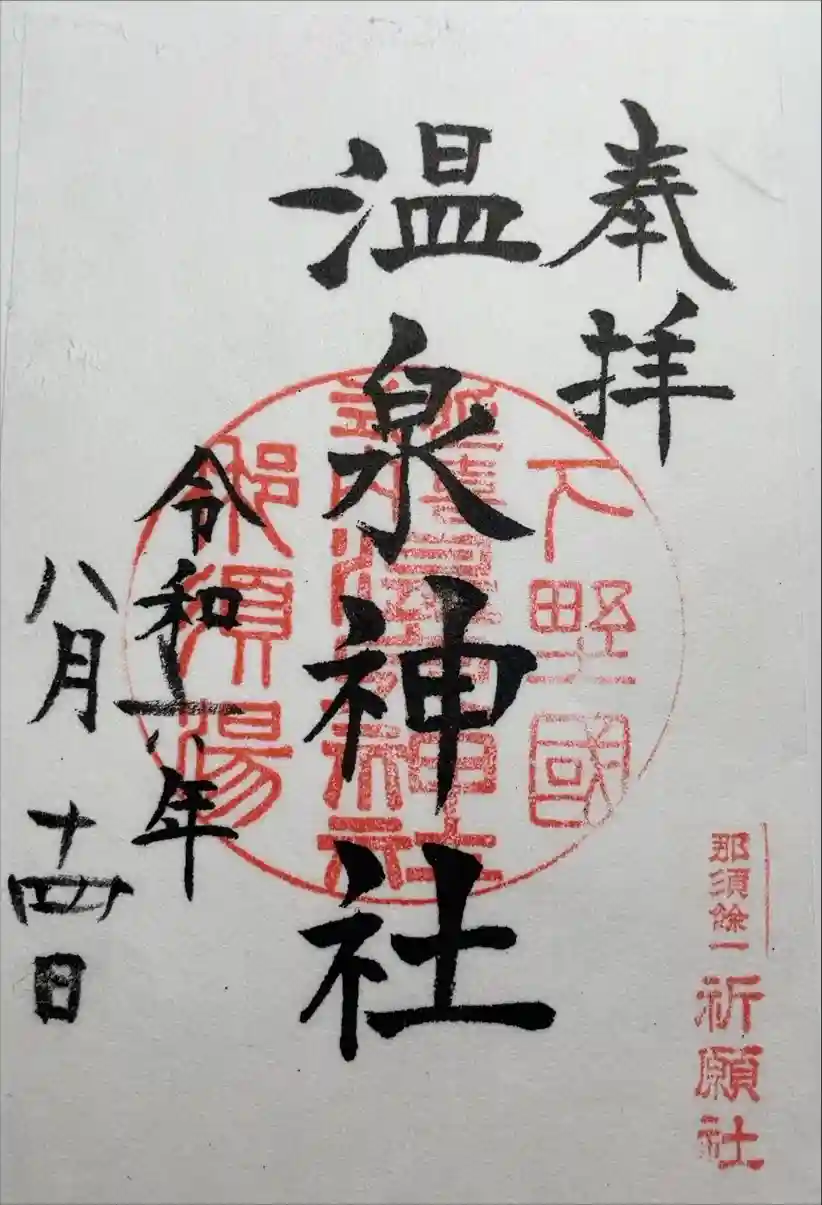 奉拝
那須餘一
祈願社
下野國
温泉神社
那須湯
令和六年
八月十四日